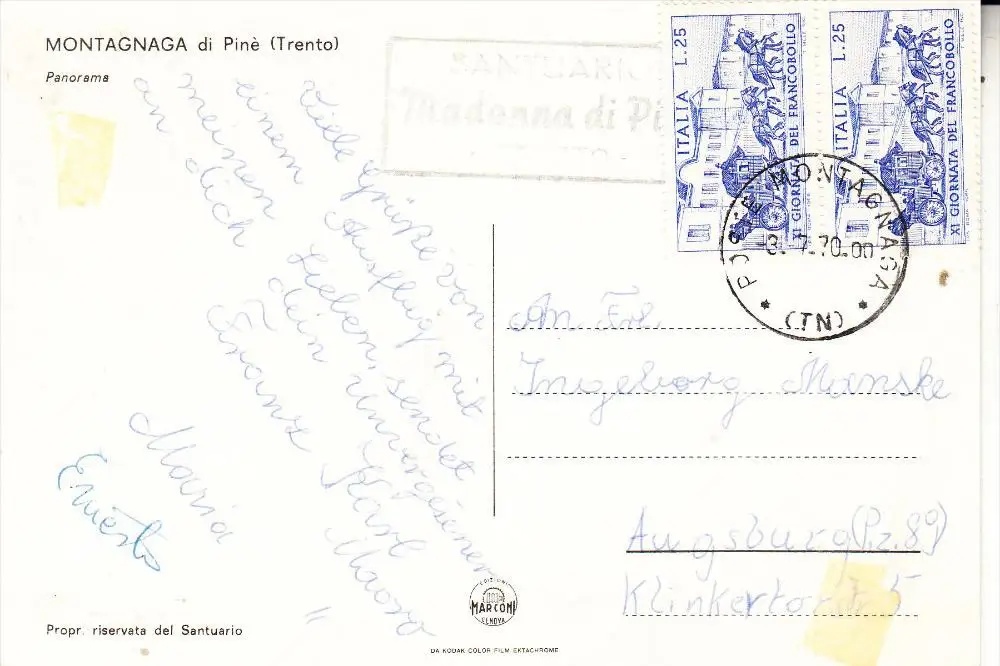 MONTAGNAGA di Pinè (Trento)
Panorama
SANTUARIO
Madonna di Pi
ITALIA L.25
XI GIORNATA DEL FRANCOBOLLO
ITALIA L.25
XI GIORNATA DEL FRANCOBOLLO
POSTE MONTAGNAGA
3.7.70.00
(TN)
Viele Grüße von
einem Ausflug mit
meinen Lieben, sendet
an dich dein unvergesener
Franz Karl
Mauro
Maria
"
Ernesto
An Frl.
Ingeborg Manske
Augsburg (Pz. 89)
Klinkertorstr 5
EDIZIONI
MARCONI
GENOVA
Propr. riservata del Santuario
DA KODAK COLOR FILM EKTACHROME